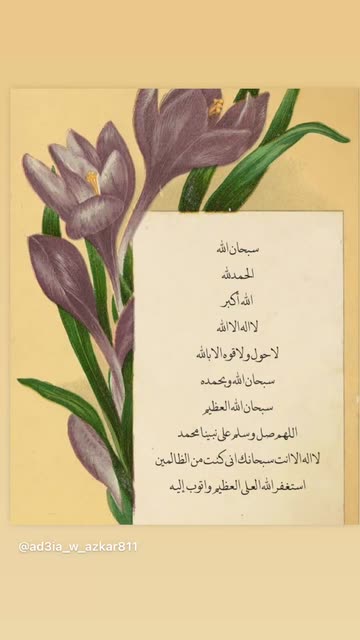 سبحان الله
الحمدلله
الله أكبر
لا اله الا الله
لا حول ولا قوه الا بالله
سبحان الله وبحمده
سبحان الله العظيم
اللهم صل وسلم على نبينا محمد
لا اله الا انت سبحانك انى كنت من الظالمين
استغفر الله العلى العظيم واتوب إليه
@ad3ia_w_azkar811